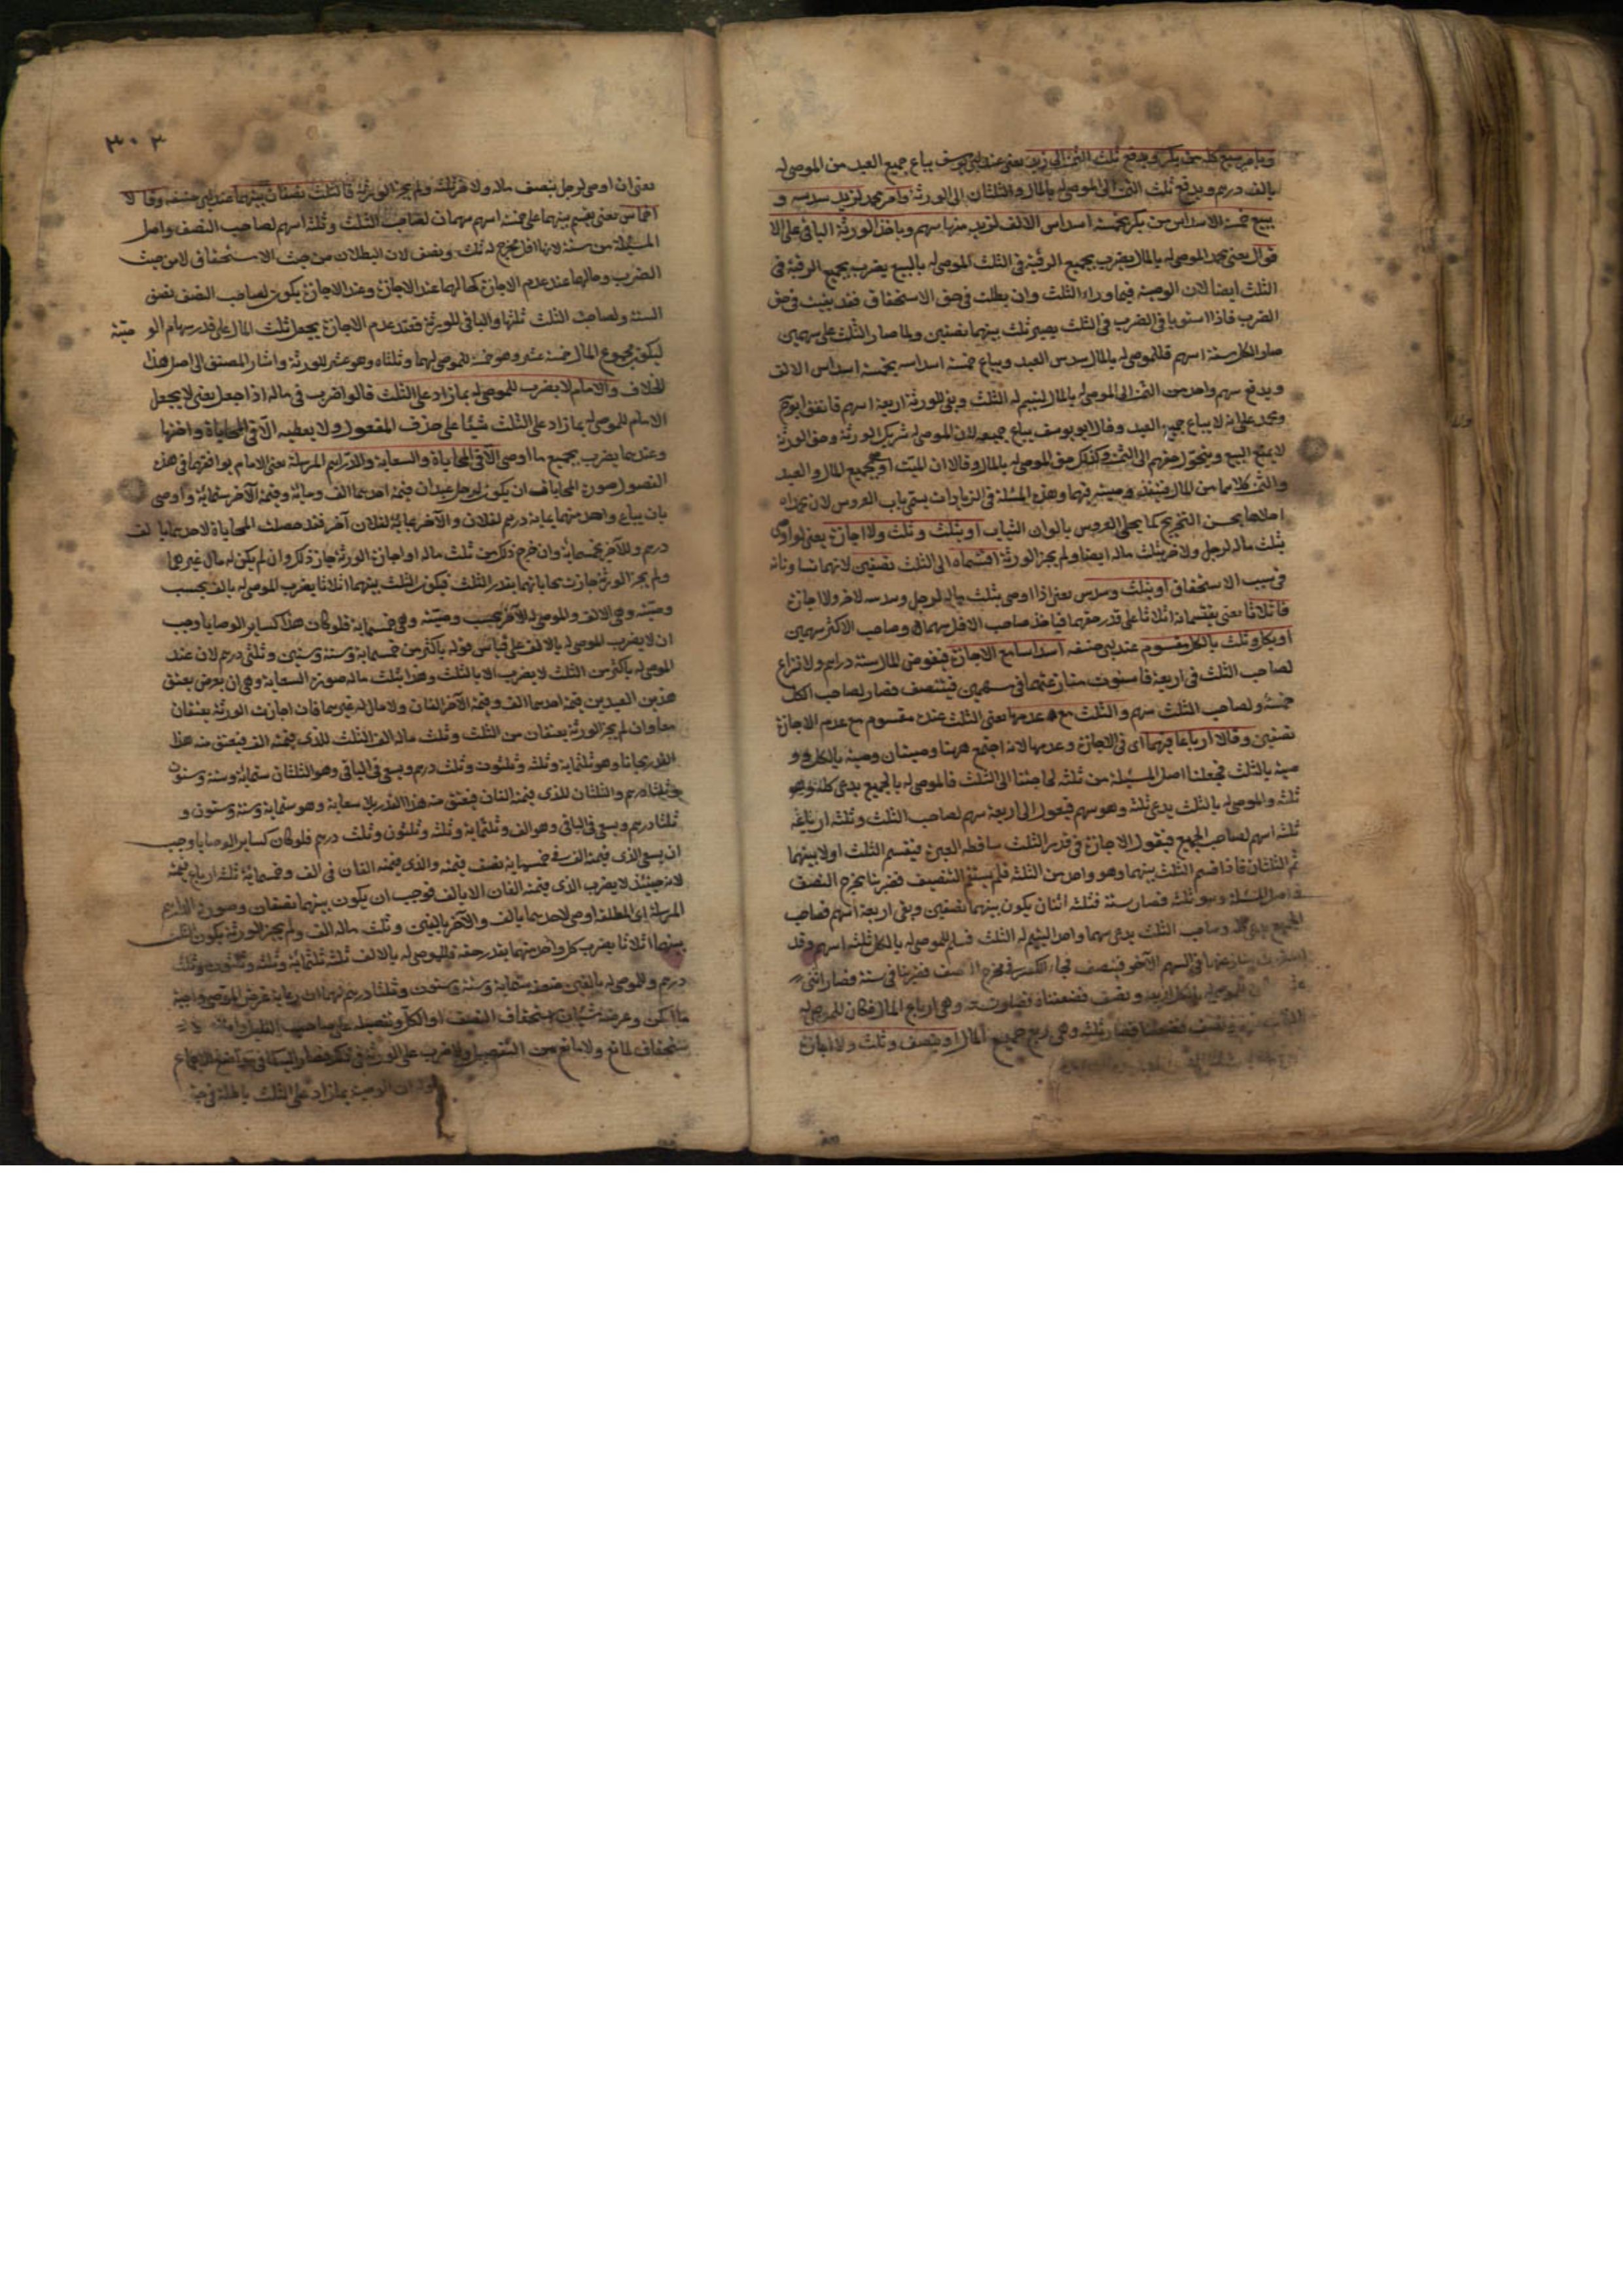 ويأمر ببيع كله من بكر ويدفع ثلث الثمن الى زيد يعنى عند ابى يوسف يباع جميع العبد من الموصى له
بالف درهم ويدفع ثلث الثمن الى الموصى له بالمال والثلثان الى الورثة وامر محمد لزيد سدسه و
ببيع خمسة الاسداس من بكر بخمسة اسداس الالف لزيد منها سهم وياخذ الورثة الباقى على الا
قوال يعنى محمد الموصى له بالمال يضرب بجميع الرقبة فى الثلث الموصى له بالبيع يضرب بجميع الرقبة فى
الثلث ايضا لان الوصية فيما وراء الثلث وان بطلت فى حق الاستحقاق فقد بقيت فى حق
الضرب فاذا استويا فى الضرب فى الثلث يصير ثلث بينهما نصفين ولما صار الثلث على سهمين
صار الكل ستة اسهم فللموصى له بالمال سدس العبد ويباع خمسة اسداسه بخمسة اسداس الالف
ويدفع سهم واحد من الثمن الى الموصى له بالمال ليتم له الثلث وبقى للورثة اربعة اسهم فاتفق ابو ح
ومحمد على انه لا يباع جميع العبد وقال ابو يوسف يباع جميعه لان الموصى له شريك الورثة وحق الورثة
لا يمنع البيع ويتحول حقهم الى الثمن وكذلك حق الموصى له بالمال وقالا ان الميت اوجب جميع المال والعبد
والثمن كلاهما من المال فينفذ وصيته فيهما وهذه المسئلة فى الزيادات يسمى باب العروس لان محمدا
احلاها بحسن التخريج كما يحلى العروس بالوان الثياب او بثلث وثلث ولا اجازة يعنى لو اوصى
بثلث ماله لرجل ولاخر بثلث ماله ايضا ولم يجز الورثة اقتسماه الى الثلث نصفين لانهما تساويا
فى سبب الاستحقاق او بثلث وسدس يعنى اذا اوصى بثلث ماله لرجل وسدسه لاخر ولا اجازة
فاثلاثا يعنى يقتسمانه اثلاثا على قدر حقهما فياخذ صاحب الاقل سهما وصاحب الاكثر سهمين
او بكل وثلث بالكل مقسوم عند ابى حنيفه اسداسا مع الاجازة فيفرض المال ستة دراهم ولا نزاع
لصاحب الثلث فى اربعة فاستوت منازعتهما فى سهمين فيتنصف فصار لصاحب الكل
خمسة ولصاحب الثلث سهم والثلث مع عدمها يعنى الثلث عنده مقسوم مع عدم الاجازة
نصفين وقالا ارباعا فيهما اى فى الاجازة وعدمها لانه اجتمع ههنا وصيتان وصية بالكل و
صية بالثلث فجعلنا اصل المسئلة من ثلثة لحاجتنا الى الثلث فالموصى له بالجميع يدعى كله وهو
ثلثة والموصى له بالثلث يدعى ثلثه وهو سهم فيعول الى اربعة سهم لصاحب الثلث وثلثة ارباعه
ثلثة اسهم لصاحب الجميع فيقول الاجازة فى قدر الثلث ساقطة العبرة فيقسم الثلث اولا بينهما
ثم الثلثان فاذا قسم الثلث بينهما وهو واحد من الثلثة فلم يستقم التنصيف فضربنا مخرج النصف
فى اصل المسئلة وهو ثلثة فصار ستة فثلثه اثنان يكون بينهما نصفين وبقى اربعة اسهم فصاحب
الجميع يدعى كله وصاحب الثلث يدعى سهما واحدا ليتم له الثلث فسلم للموصى له بالكل ثلثة اسهم وقد
استوت منازعتهما فى السهم الآخر فينصف فجاء الكسر فى مخرج النصف فضربنا فى ستة فصار اثنى
ونصف فضعفناه فصارت تسعة وهى ارباع المال فكان للموصى له
ونصف فضعفنا فصار ثلثة وهى ربع جميع المال او بنصف وثلث ولا اجازة

٣٠٣
يعنى ان اوصى لرجل بنصف ماله ولاخر ثلثه ولم يجز الورثة فالثلث نصفان بينهما عند ابى حنيفه وقالا
اخماس يعنى يقسم بينهما على خمسة اسهم سهمان لصاحب الثلث وثلثة اسهم لصاحب النصف واصل
المسئلة من ستة لانها اقل مخرج له ثلث ونصف لان البطلان من حيث الاستحقاق لا من حيث
الضرب وحالهما عند عدم الاجازة كحالهما عند الاجازة وعند الاجازة يكون لصاحب النصف نصف
الستة ولصاحب الثلث ثلثها والباقى للورثة فعند عدم الاجازة يجعل ثلث المال على قدر سهام الو صية
ليكون مجموع المال خمسة عشر وهو خمسة للموصى لهما وثلثاه وهو عشر للورثة واشار المصنف الى اصل هذا
الخلاف والامام لا يضرب للموصى له بما زاد على الثلث قالوا ضرب فى ماله اذا جعل يعنى لا يجعل
الامام للموصى له بما زاد على الثلث شيئا على حذف المفعول ولا يعطيه الا فى المحاباة واختها
وعندهما يضرب بجميع ما اوصى الا فى المحاباة والسعاية والدراهم المرسلة يعنى الامام يوافقهما فى هذه
الفصول صورة المحاباة ان يكون لرجل عبدان قيمة احدهما الف ومائة وقيمة الآخر ستمائة واوصى
بان يباع واحد منهما بمائة درهم لفلان والآخر بمائة لفلان آخر فقد حصلت المحاباة لاحدهما بالف
درهم وللآخر بخمسمائة وان خرج ذلك من ثلث ماله او اجازة الورثة جاز ذلك وان لم يكن له مال غيرهما
ولم يجز الورثة جازت محاباتهما بقدر الثلث فيكون الثلث بينهما اثلاثا يضرب الموصى له بالف بحسب
وصيته وهى الالف والموصى له الآخر بحسب وصيته وهى خمسمائة فلو كان هذا كساير الوصايا وجب
ان لا يضرب الموصى له بالالف على قياس قوله باكثر من خمسمائة وستة وستين وثلثى درهم لان عنده
الموصى له باكثر من الثلث لا يضرب الا بالثلث وهذا ثلث ماله صورة السعاية وهى ان يعرض بعتق
هذين العبدين قيمة احدهما الف وقيمة الآخر الفان ولا مال له غيرهما فان اجازت الورثة يعتقان
معا وان لم يجز الورثة يعتقان من الثلث وثلث ماله الف الثلث للذى قيمته الف فيعتق منه هذا
القدر مجانا وهو ثلثمائة وثلثة وثلثون وثلث درهم ويسعى فى الباقى وهو الثلثان ستمائة وستة وستون
وثلثا درهم والثلثان للذى قيمته الفان فيعتق منه هذا القدر بلا سعاية وهو ستمائة وستة وستون و
ثلثا درهم ويسعى فى الباقى وهو الف وثلثمائة وثلثة وثلثون وثلث درهم فلو كان كساير الوصايا وجب
ان يسعى الذى قيمته الف فى خمسمائة نصف قيمته والذى قيمته الفان فى الف وخمسمائة ثلثة ارباع قيمته
لانه حينئذ لا يضرب الذى قيمته الفان الا بالف فوجب ان يكون بينهما نصفان وصورة الدراهم
المرسلة اى المطلقة اوصى لاحدهما بالف والآخر بالفين وثلث ماله الف ولم يجز الورثة يكون الثلث
بينهما اثلاثا يضرب كل واحد منهما بقدر حقه فللموصى له بالالف ثلثة ثلثمائة وثلثة وثلثون وثلث
درهم وللموصى له بالفين ضعفه ستمائة وستة وستون وثلثا درهم لهما ان رعاية غرض الموصى واجبة
ما امكن وغرضه شيئان استحقاق النصف او الكل وتفضيله على صاحب الثلث وامتنع الا
ستحقاق لمانع ولا مانع من التفضيل ولا ضرر على الورثة فى ذلك فصار كما فى مواضع الاجماع
وله ان الوصية بما زاد على الثلث باطلة فى حق